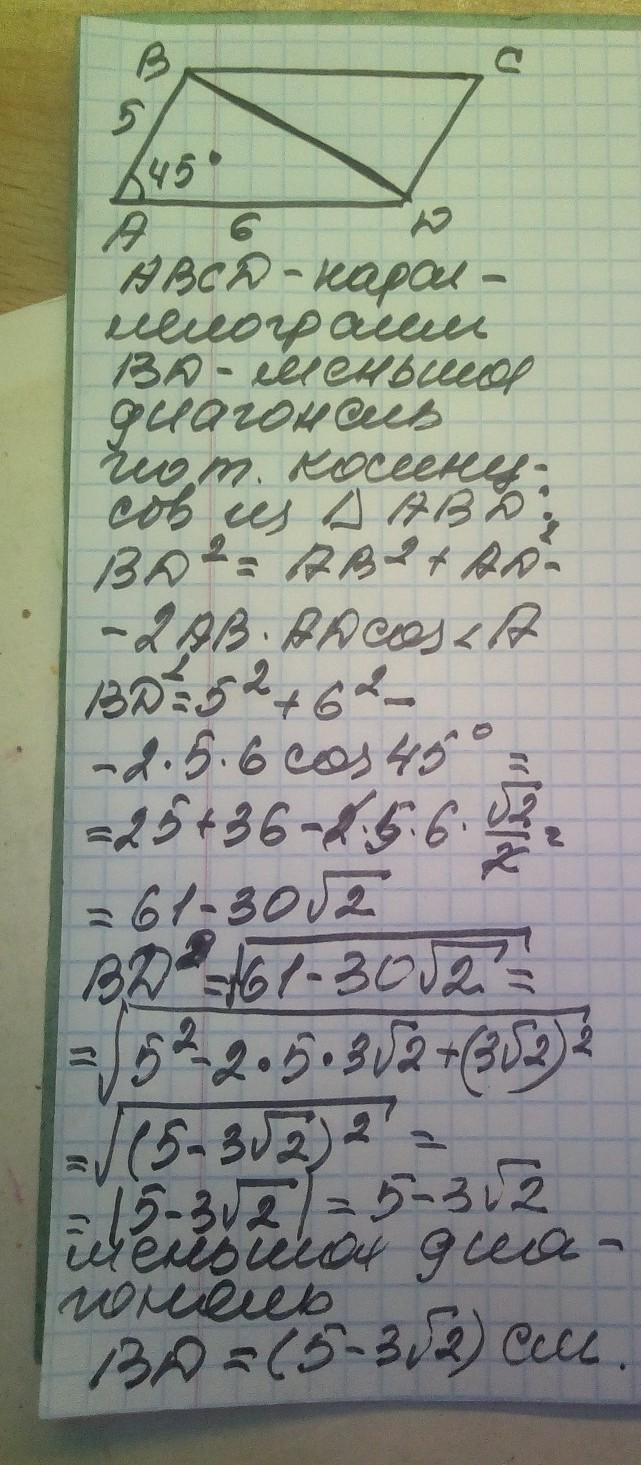 B C
5
45°
A 6 D
ABCD - парал-
лелограмм
BD - меньшая
диагональ
по т. косину-
сов из △ ABD:
BD² = AB² + AD² -
- 2AB · AD cos ∠A
BD² = 5² + 6² -
- 2 · 5 · 6 cos 45° =
= 25 + 36 - 2 · 5 · 6 · √2/2 =
= 61 - 30√2
BD² = √(61 - 30√2) =
= √(5² - 2 · 5 · 3√2 + (3√2)²)
= √((5 - 3√2)²) =
= |5 - 3√2| = 5 - 3√2
меньшая диа-
гональ
BD = (5 - 3√2) см.